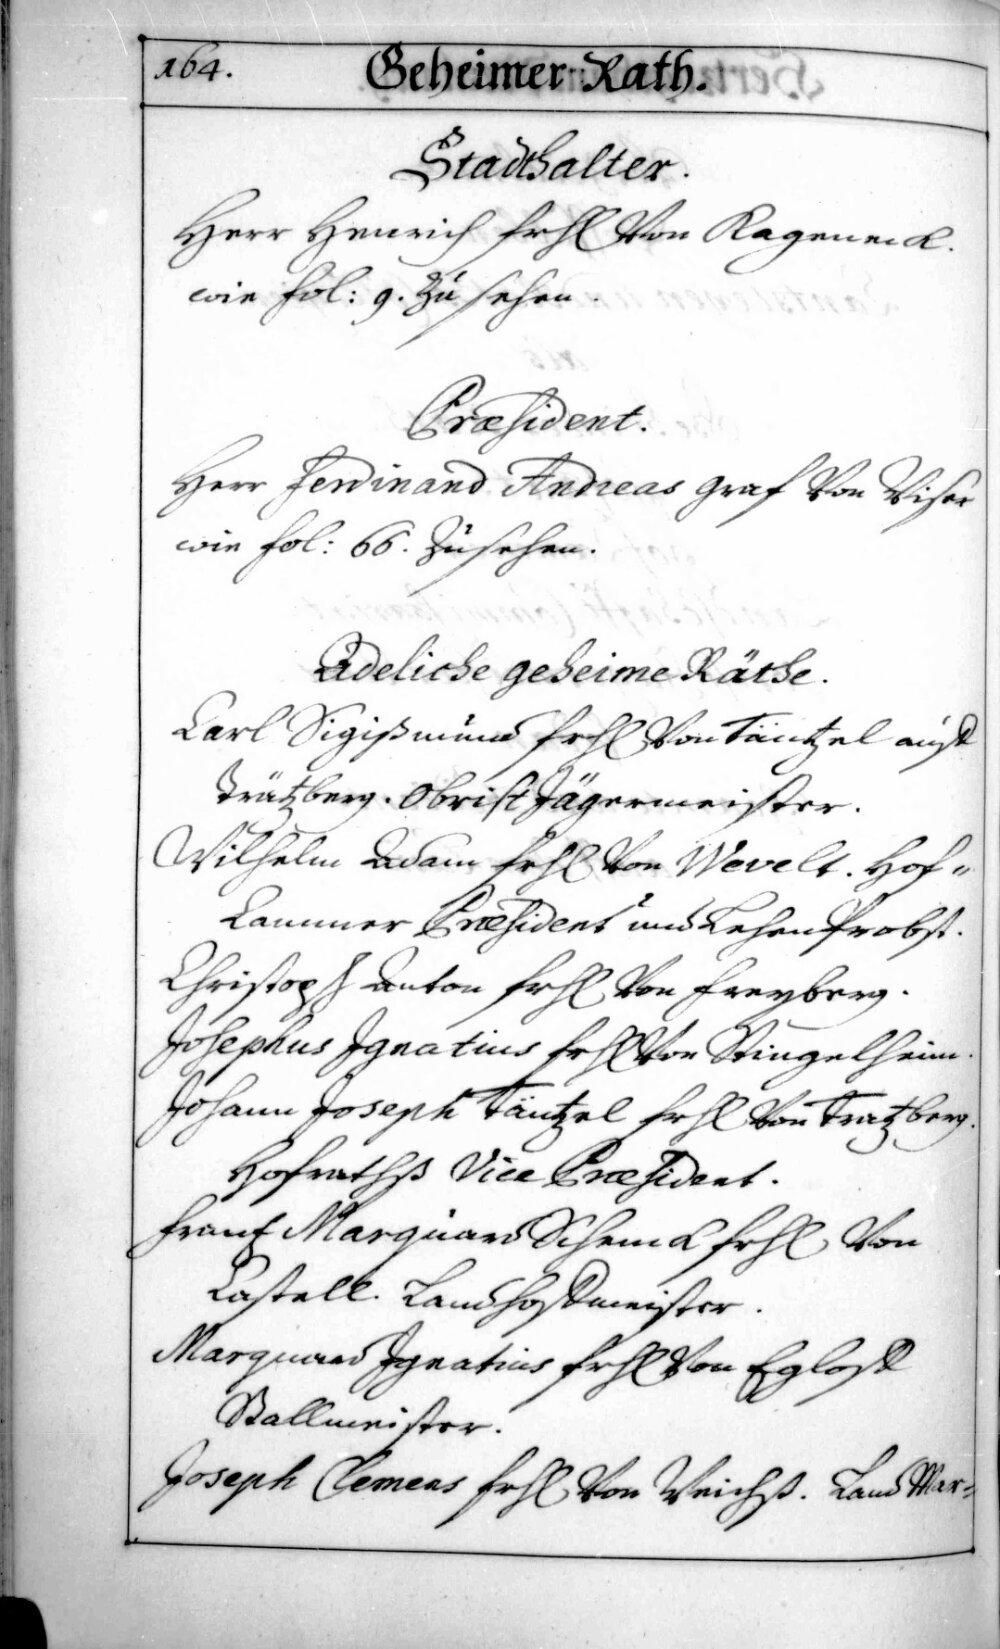 164. Geheimer Rath.
Stadthalter.
Herr Henrich frhl Von Kageneck.
wie fol: 9. Zü sehen.
Præsident.
Herr Ferdinand Andreas graf Von Viser
wie fol: 66. Züsehen.
Adeliche geheime Räthe.
Carl Sigißmünd frhl Von Täntzel aüf
Trätzberg. Obrist Jägermeister.
Wilhelm Adam frhl Von Wevelt. Hof-
Cammer Præsident und Lehen Probst.
Christoph Anton frhl Von Freyberg.
Josephus Ignatius frhl Von Stingelheim.
Johann Joseph Täntzel frhl Von Tratzberg.
Hofrathß Vice Præsident.
Frantz Marquard Schenck frhl Von
Castell. Landhofmeister.
Marquard Ignatius frhl Von Egloff
Stallmeister.
Joseph Clemens frhl Von Weichß. Land Mar-